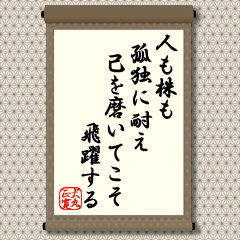 人も株も
孤独に耐え
己を磨いてこそ
飛躍する
大丸正富